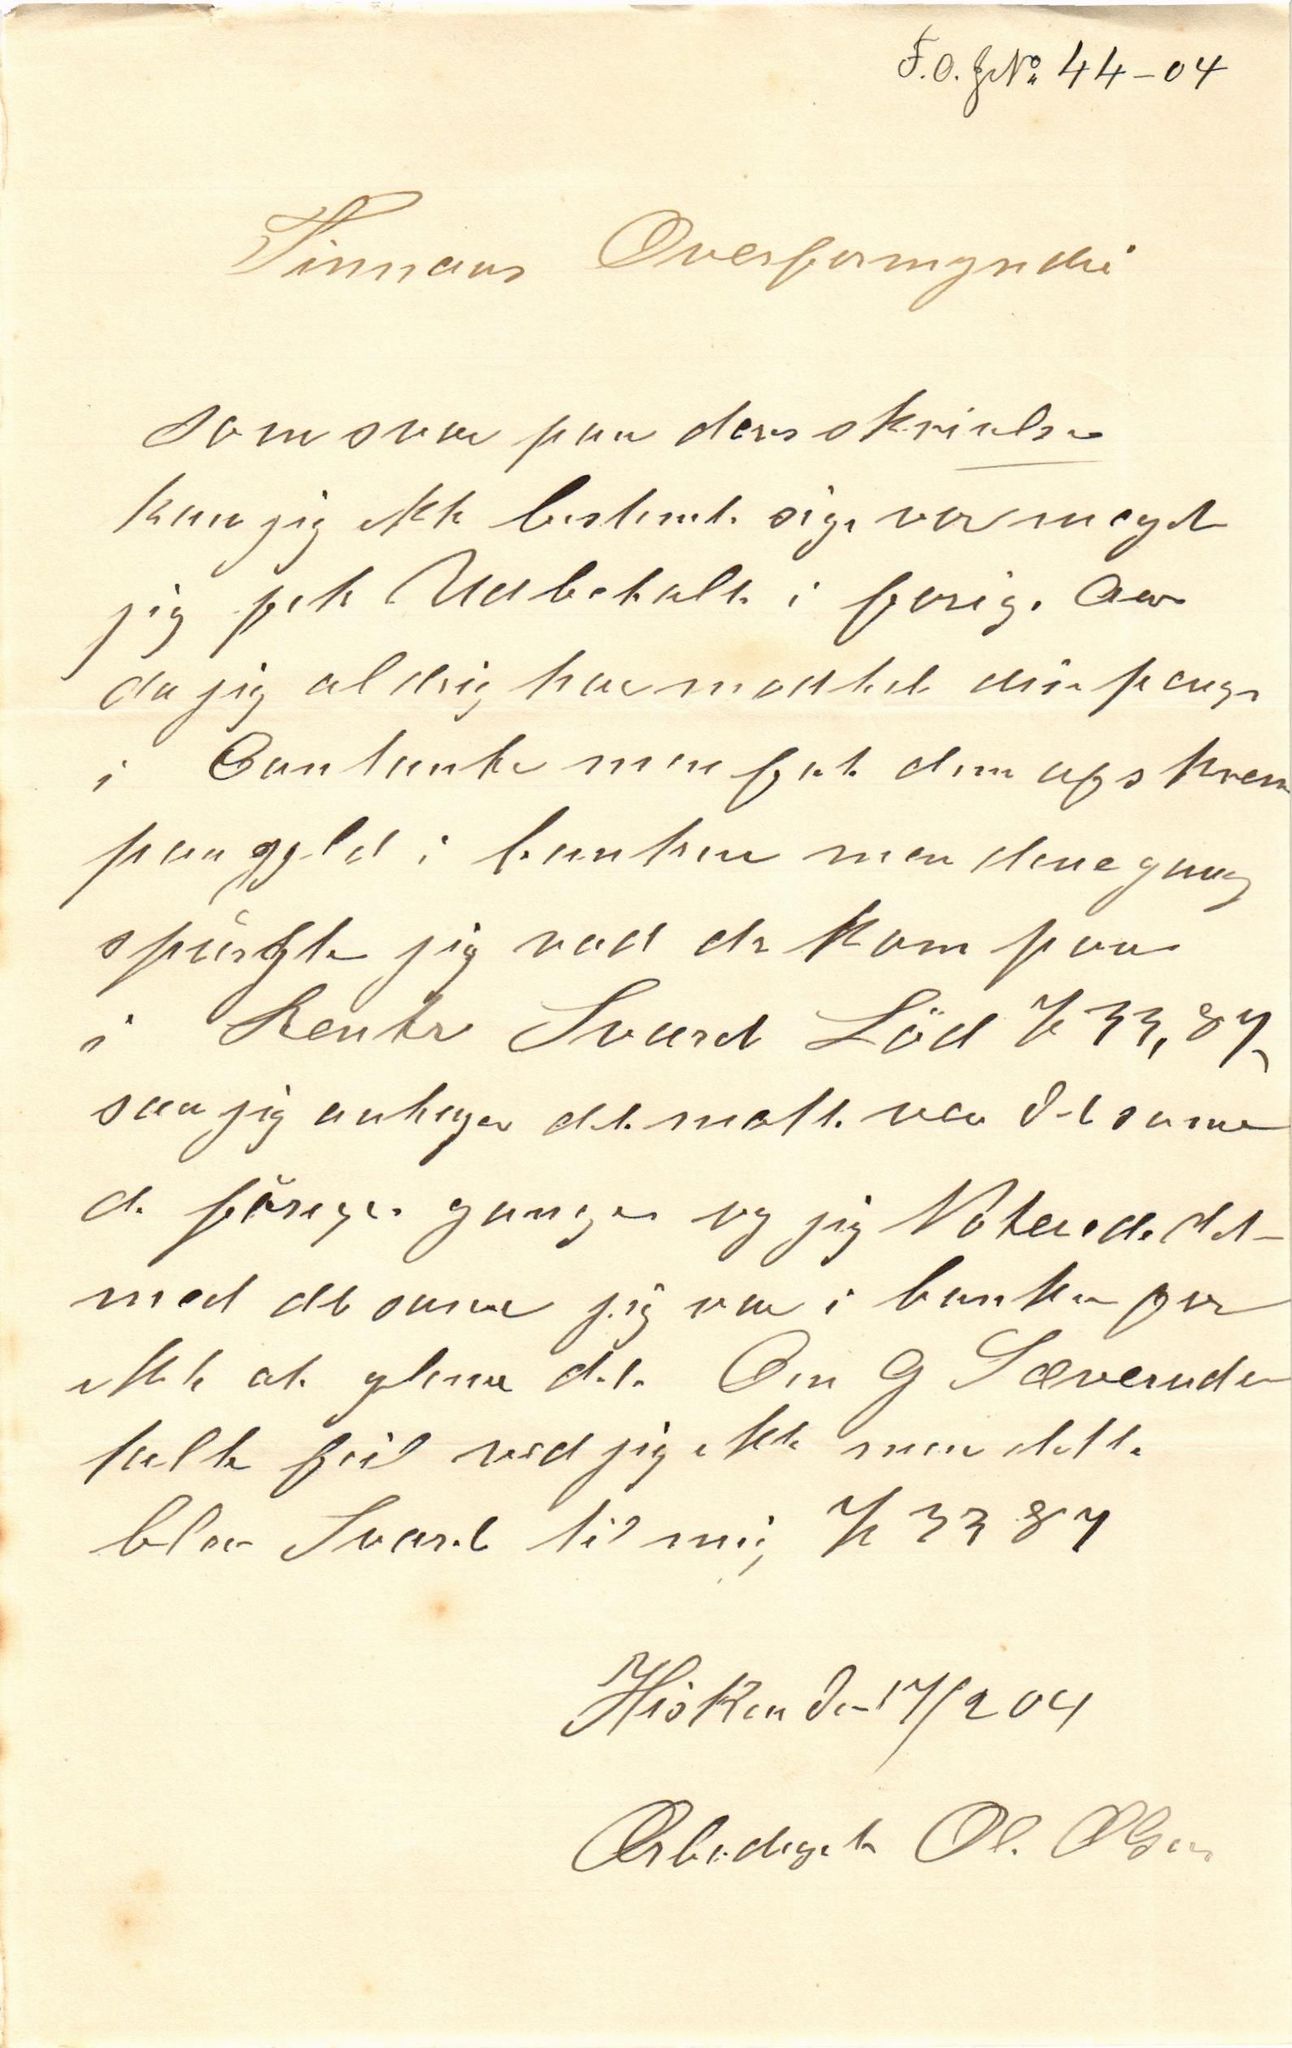 F.O. JNo 44-04
Finnaas Overformynderi
som svar paa deres skrivelse
kan jig ikke bestemt sige vor meget
jig fek Udbetalt i forige Aar
da jig aldrig har modtet disse penge
i Contante men fek dem afskreve
paa gjeld i banken men denne gang
spürgte jig vad de kom paa
i Renter Svaret Löd Kr 33,87,
saa jig antager det matte være det same
de förige ganger og jig Noterede det
med det same jig var i banken for
ikke at gleme det. Om G Sæverud
talte feil ved jig ikke men dette
blev Svaret til mig Kr 33 87
Hisken den 17/2 04
Ærbødigst Ol. Olsen